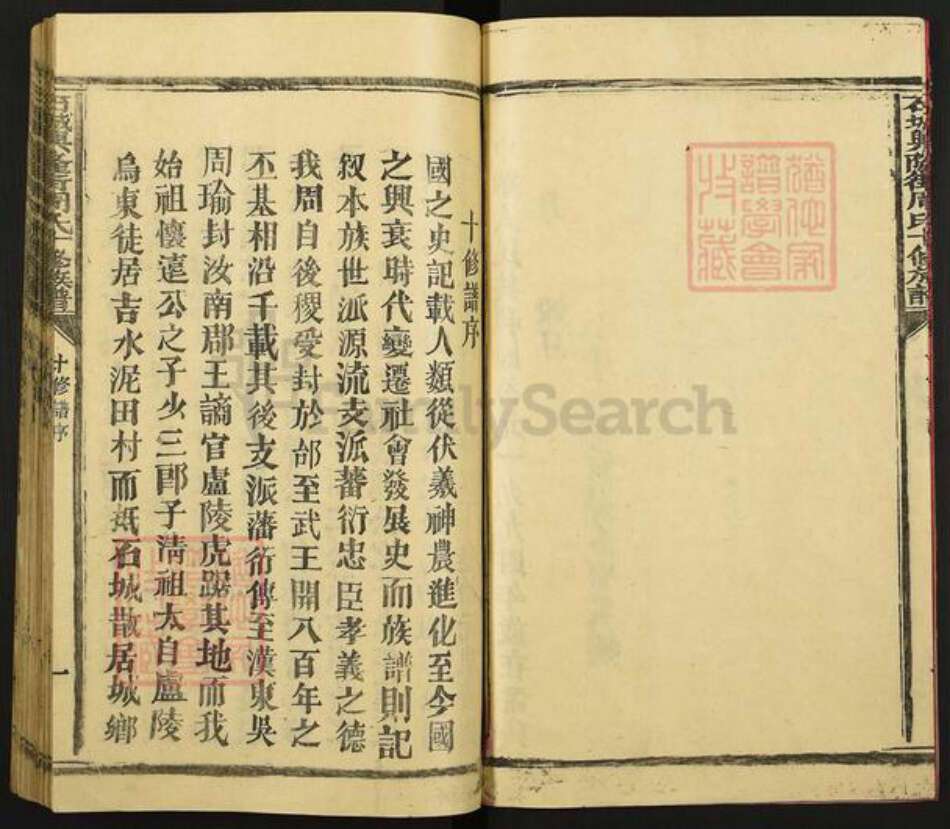 石城興隆街周氏十修族譜
猶他家
譜學會
收藏
十修譜序
國之史記載人類從伏羲神農進化至今國
之興衰時代變遷社會發展史而族譜則記
叙本族世派源流支派蕃衍忠臣孝義之德
我周自後稷受封於邰至武王開八百年之
丕基相沿千載其後支派藩衍傳至漢東吳
周瑜封汝南郡王謫官盧陵虎踞其地而我
始祖懷遠公之子少三郎子清祖太自盧陵
烏東徒居吉水泥田村而抵石城散居城鄉
石城興隆街周氏十修族譜
十修譜序
一
FamilySearch